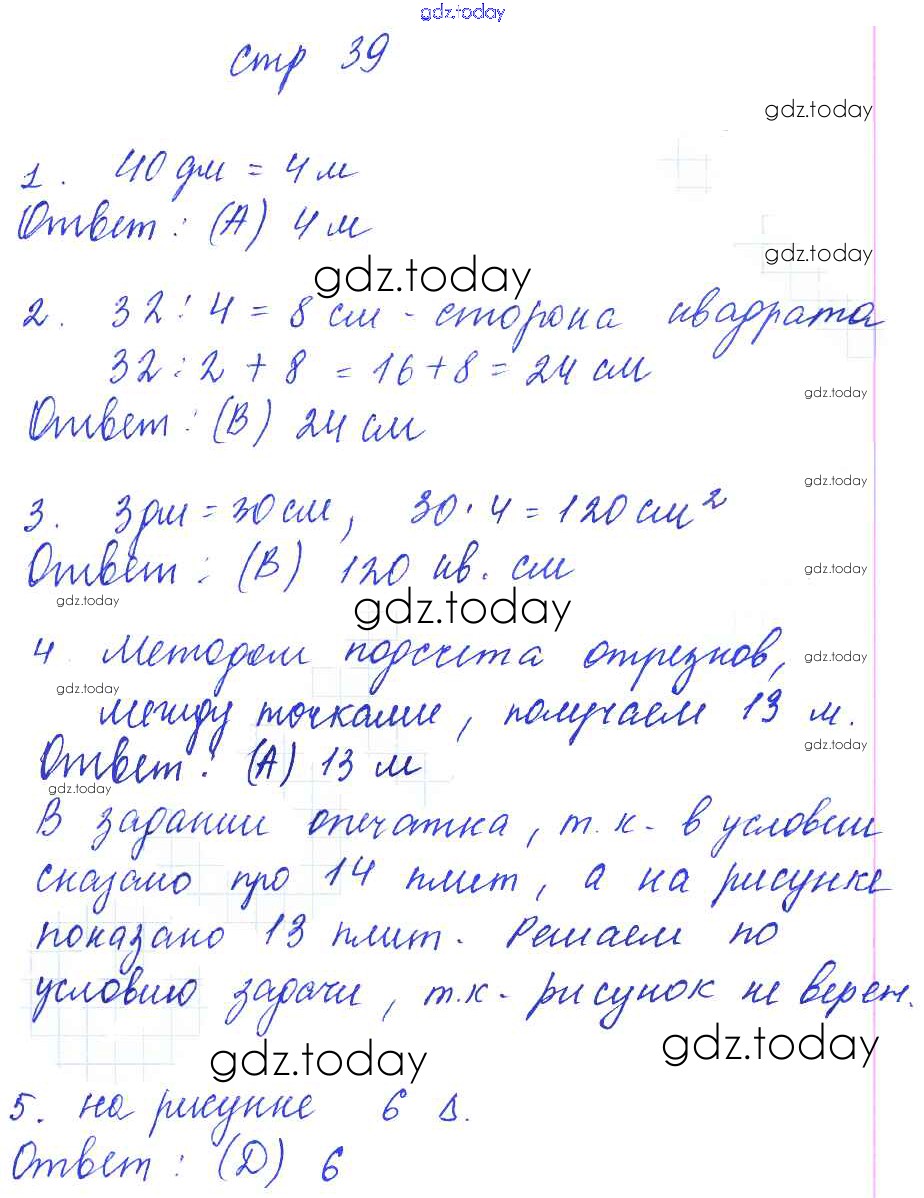 gdz.today
стр 39
gdz.today
1. 40 дм = 4 м
Ответ : (А) 4 м
gdz.today
gdz.today
2. 32 : 4 = 8 см - сторона квадрата
32 : 2 + 8 = 16 + 8 = 24 см
gdz.today
Ответ : (В) 24 см
gdz.today
3. 3 дм = 30 см, 30 · 4 = 120 см²
Ответ : (В) 120 кв. см
gdz.today
gdz.today
gdz.today
4 Методом подсчета отрезков,
gdz.today
gdz.today
между точками, получаем 13 м.
gdz.today
Ответ : (А) 13 м
gdz.today
В задании опечатка, т.к. в условии
сказано про 14 плит, а на рисунке
показано 13 плит. Решаем по
условию задачи, т.к. рисунок не верен.
gdz.today
gdz.today
5. на рисунке 6 Δ.
Ответ : (D) 6